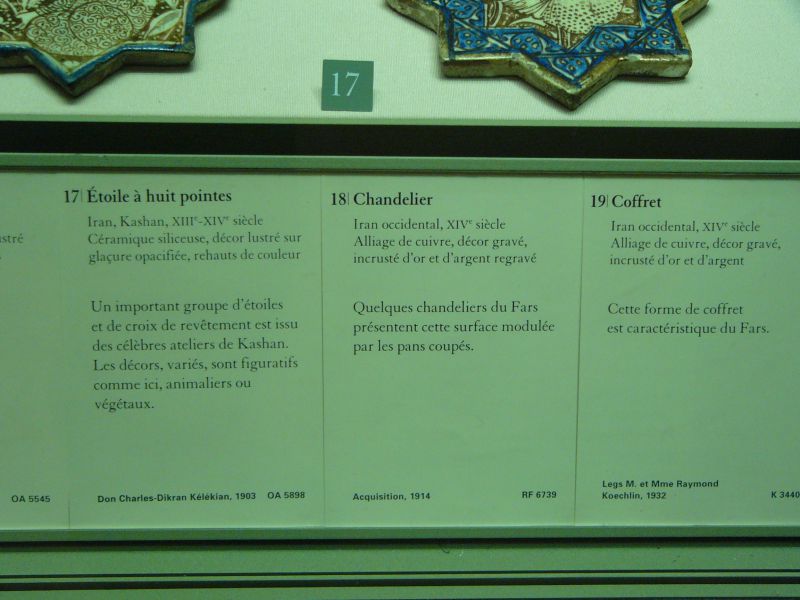 17
17 Étoile à huit pointes
Iran, Kashan, XIIIe-XIVe siècle
Céramique siliceuse, décor lustré sur
glaçure opacifiée, rehauts de couleur
Un important groupe d'étoiles
et de croix de revêtement est issu
des célèbres ateliers de Kashan.
Les décors, variés, sont figuratifs
comme ici, animaliers ou
végétaux.
Don Charles-Dikran Kélékian, 1903 OA 5898
18 Chandelier
Iran occidental, XIVe siècle
Alliage de cuivre, décor gravé,
incrusté d'or et d'argent regravé
Quelques chandeliers du Fars
présentent cette surface modulée
par les pans coupés.
Acquisition, 1914 RF 6739
19 Coffret
Iran occidental, XIVe siècle
Alliage de cuivre, décor gravé,
incrusté d'or et d'argent
Cette forme de coffret
est caractéristique du Fars.
Legs M. et Mme Raymond
Koechlin, 1932 K 3440
OA 5545